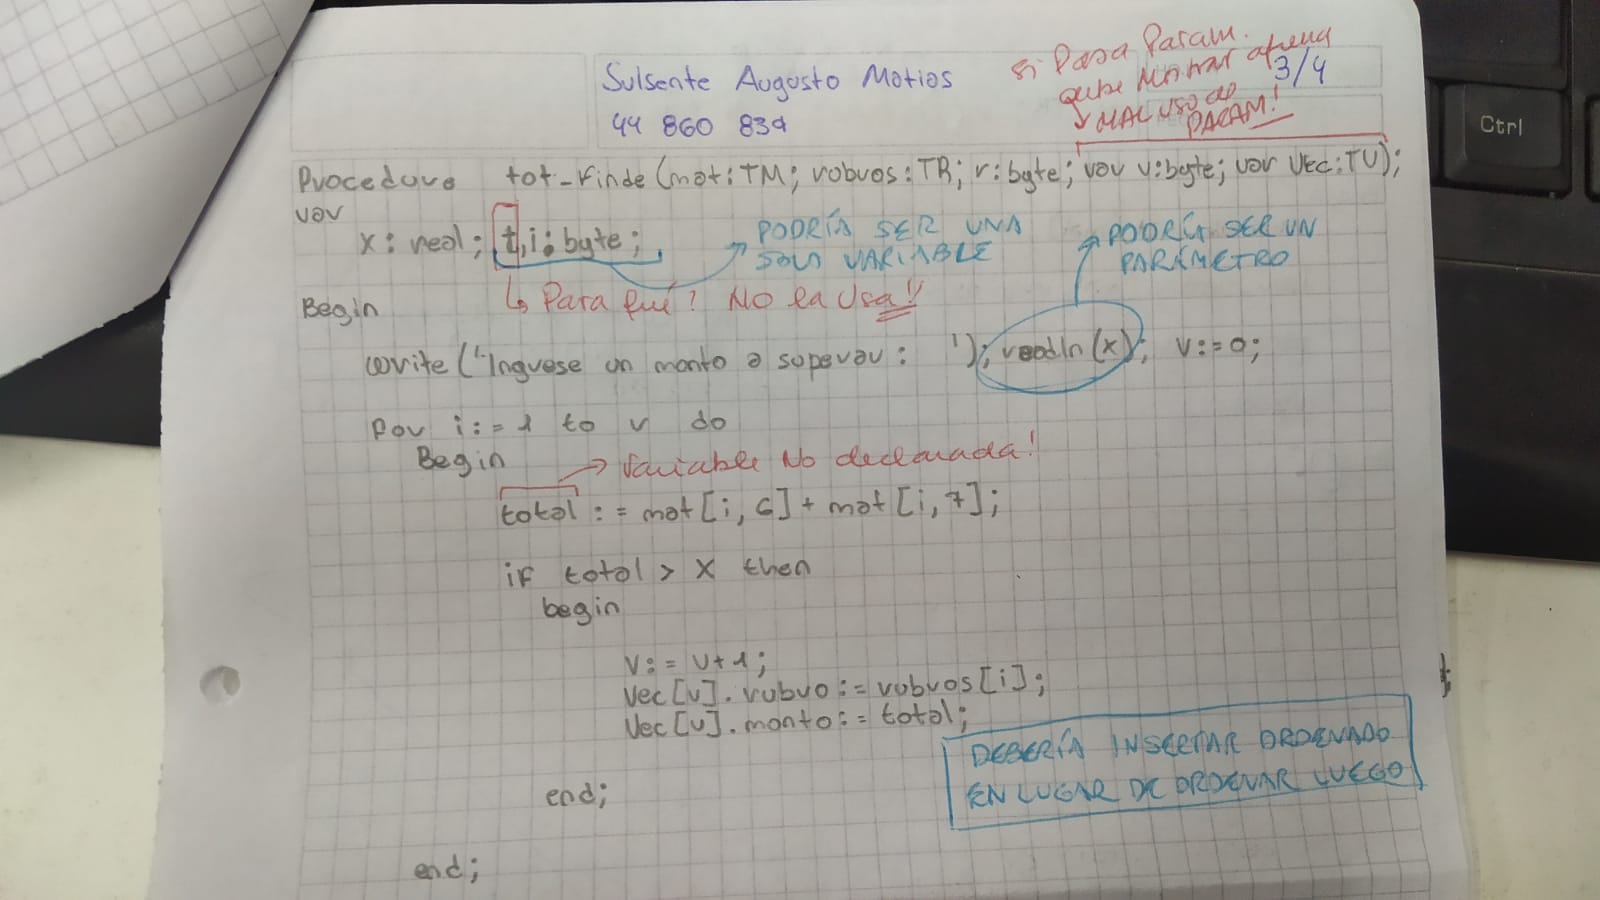 Sulsente Augusto Matias
44 860 834
3/4
si Pasa Param.
debe mostrar afuera
MAL uso de
PARAM!
Procedure tot_finde (mat: TM; rubros: TR; r: byte; var v: byte; var Vec: TV);
var
x: real; t, i: byte;
PODRÍA SER UNA
SOLA VARIABLE
PODRÍA SER UN
PARÁMETRO
Para qué? No la usa!!
Begin
write ('Ingrese un monto a superar: '); readln (x); v:=0;
For i:=1 to r do
Begin
Variable No declarada!
total := mat [i, 6] + mat [i, 7];
if total > x then
begin
v:= v+1;
Vec [v]. rubro := rubros [i];
Vec [v]. monto := total;
DEBERÍA INSERTAR ORDENADO
EN LUGAR DE ORDENAR LUEGO
end;
end;
Ctrl